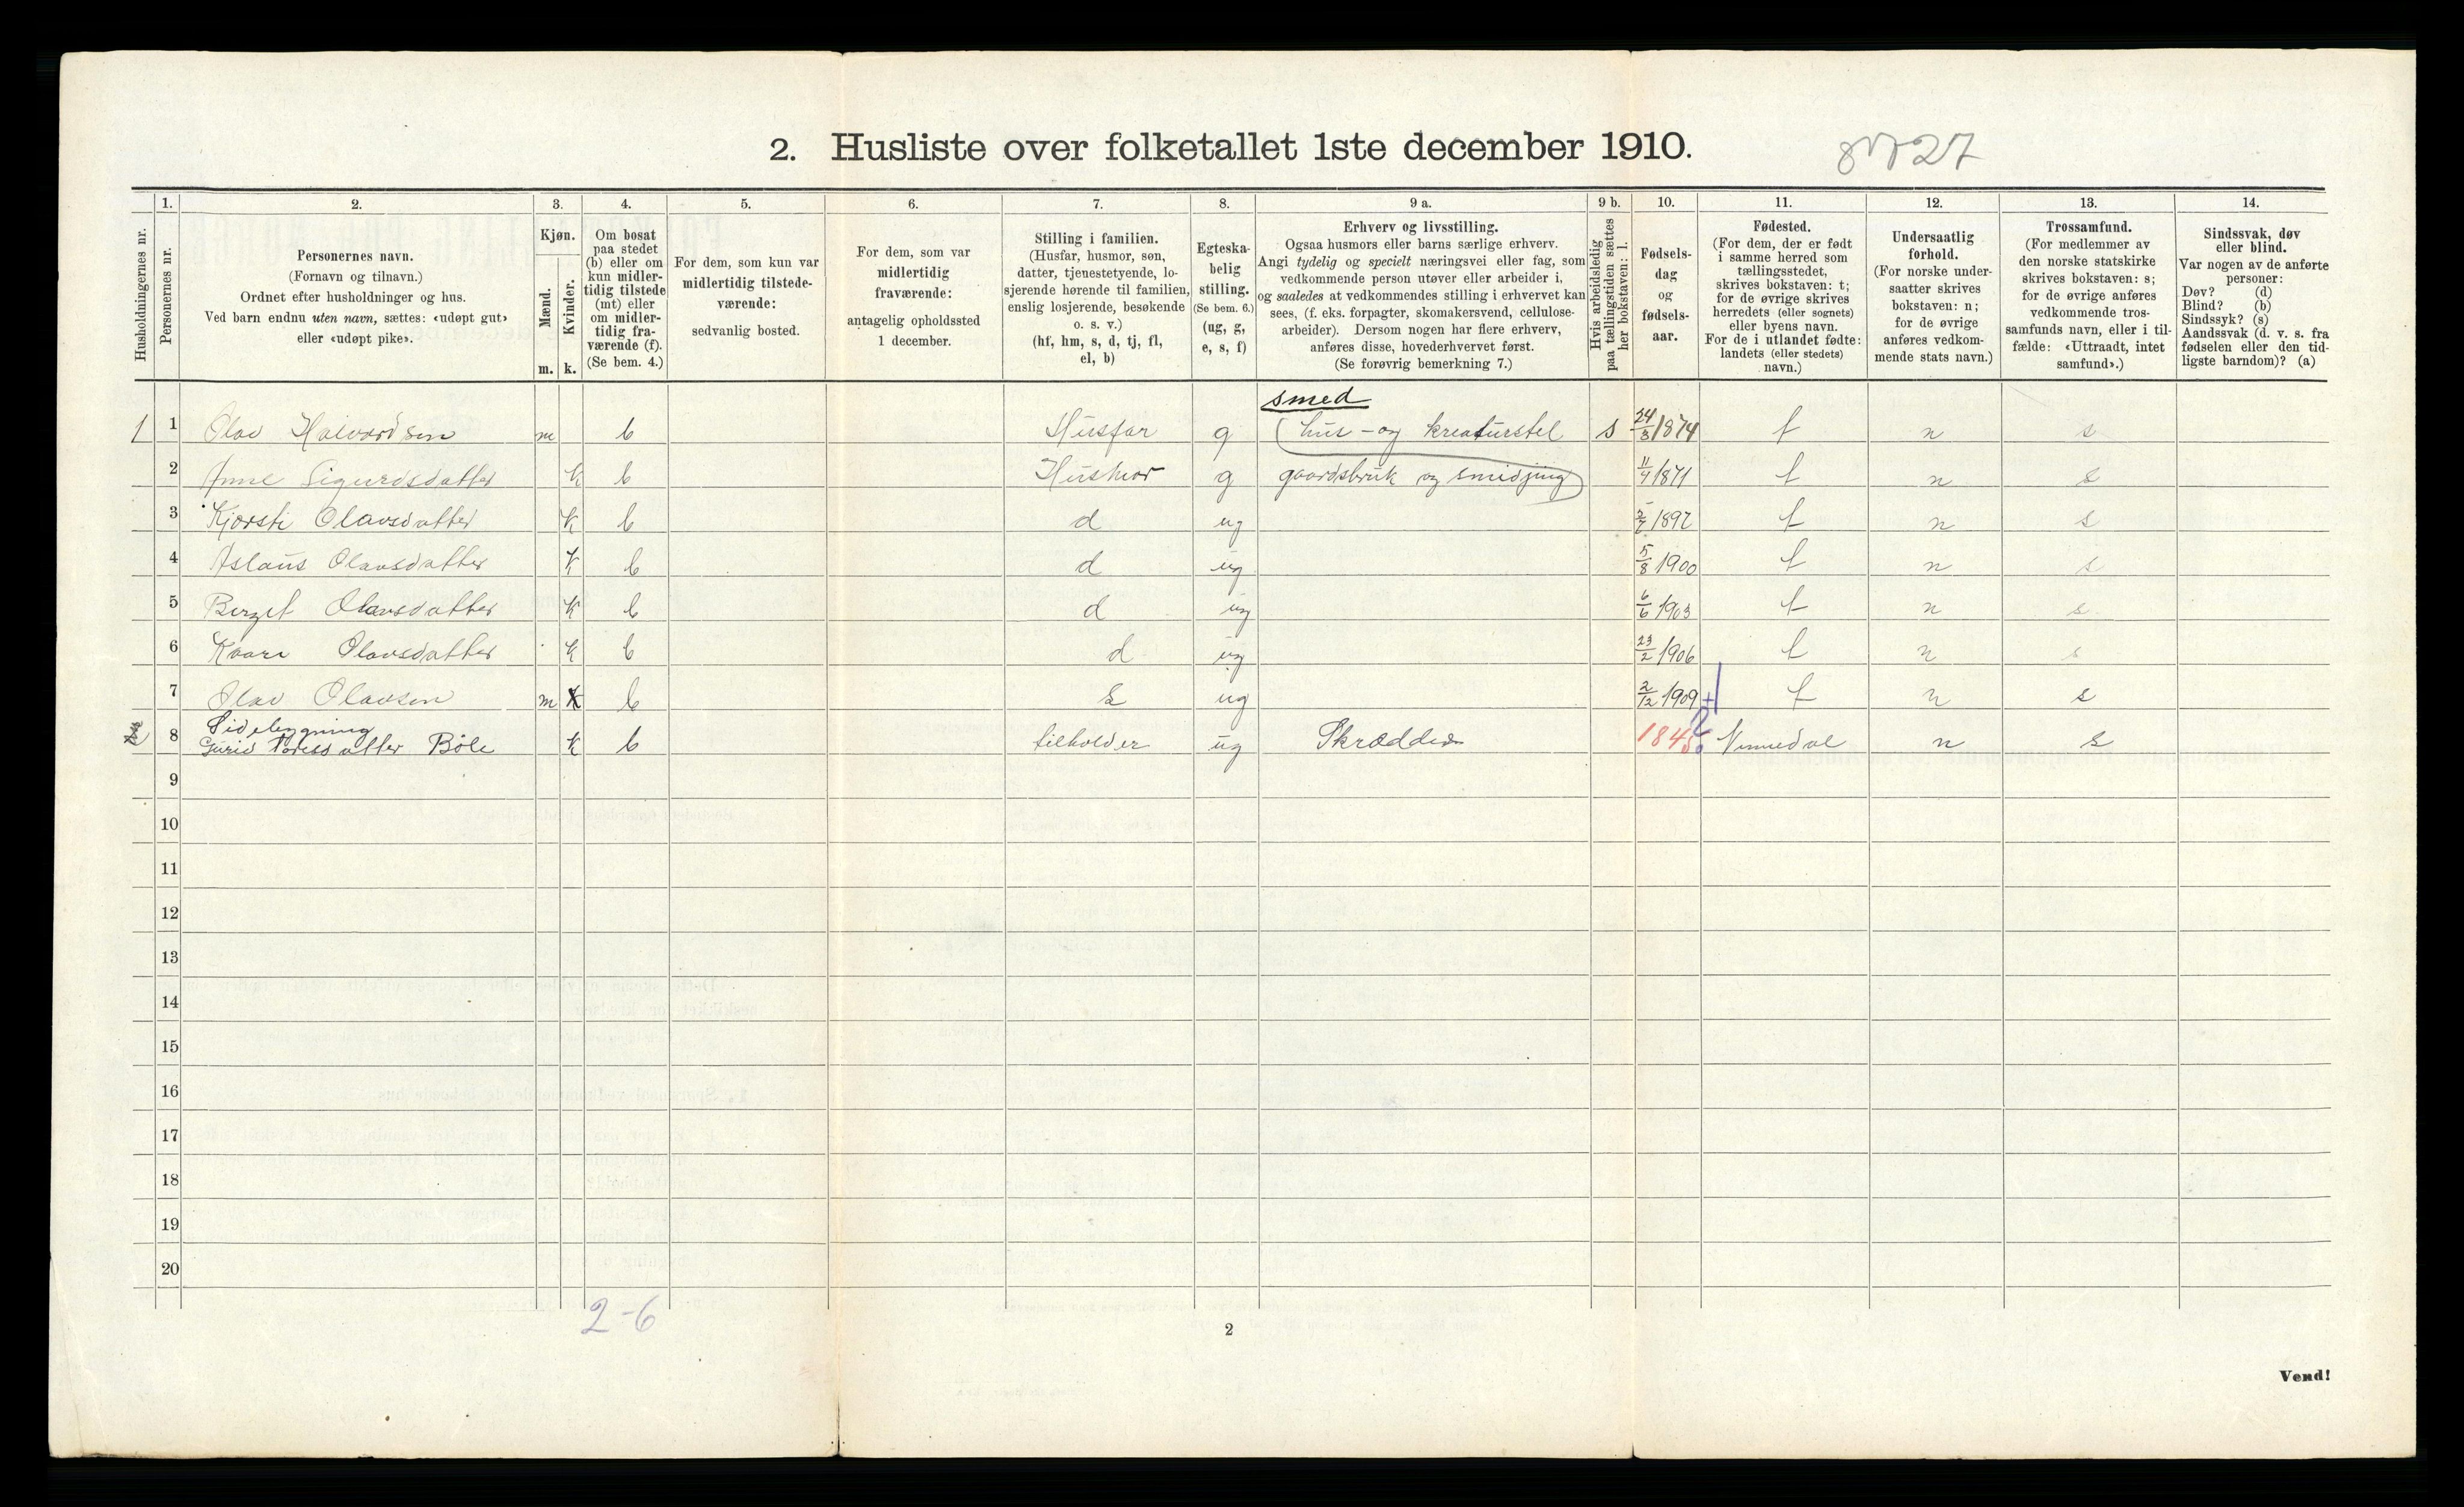 2. Husliste over folketallet 1ste december 1910.
27
1. 2. 3. 4. 5. 6. 7. 8. 9 a. 9 b. 10. 11. 12. 13. 14.
Husholdningernes nr.
Personernes nr.
Personernes navn.
(Fornavn og tilnavn.)
Ordnet efter husholdninger og hus.
Ved barn endnu uten navn, sættes: «udøpt gut»
eller «udøpt pike».
Kjøn.
Mænd.
Kvinder.
m. k.
Om bosat
paa stedet
(b) eller om
kun midler-
tidig tilstede
(mt) eller
om midler-
tidig fra-
værende (f).
(Se bem. 4.)
For dem, som kun var
midlertidig tilstede-
værende:
sedvanlig bosted.
For dem, som var
midlertidig
fraværende:
antagelig opholdssted
1 december.
Stilling i familien.
(Husfar, husmor, søn,
datter, tjenestetyende, lo-
sjerende hørende til familien,
enslig losjerende, besøkende
o. s. v.)
(hf, hm, s, d, tj, fl,
el, b)
Egteska-
belig
stilling.
(Se bem. 6.)
(ug, g,
e, s, f)
Erhverv og livsstilling.
Ogsaa husmors eller barns særlige erhverv.
Angi tydelig og specielt næringsvei eller fag, som
vedkommende person utøver eller arbeider i,
og saaledes at vedkommendes stilling i erhvervet kan
sees, (f. eks. forpagter, skomakersvend, cellulose-
arbeider). Dersom nogen har flere erhverv,
anføres disse, hovederhvervet først.
(Se forøvrig bemerkning 7.)
Hvis arbeidsledig
paa tællingstiden sættes
her bokstaven: l.
Fødsels-
dag
og
fødsels-
aar.
Fødested.
(For dem, der er født
i samme herred som
tællingsstedet,
skrives bokstaven: t;
for de øvrige skrives
herredets (eller sognets)
eller byens navn.
For de i utlandet fødte:
landets (eller stedets)
navn.)
Undersaatlig
forhold.
(For norske under-
saatter skrives
bokstaven: n;
for de øvrige
anføres vedkom-
mende stats navn.)
Trossamfund.
(For medlemmer av
den norske statskirke
skrives bokstaven: s;
for de øvrige anføres
vedkommende tros-
samfunds navn, eller i til-
fælde: «Uttraadt, intet
samfund».)
Sindssvak, døv
eller blind.
Var nogen av de anførte
personer:
Døv? (d)
Blind? (b)
Sindssyk? (s)
Aandssvak (d. v. s. fra
fødselen eller den tid-
ligste barndom)? (a)
smed
1 1 Olav Halvordsen m b Husfar g (hus- og kreaturstel s 24/3 1874 t n s
2 Anne Sigurdsdatter k b Husmor g gaardsbruk og smidjing) 11/4 1871 t n s
3 Kjorsti Olavsdatter k b d ug 2/7 1897 t n s
4 Aslaug Olavsdatter k b d ug 5/8 1900 t n s
5 Bergit Olavsdatter k b d ug 6/6 1903 t n s
6 Kaari Olavsdatter k b d ug 23/2 1906 t n s
7 Olav Olavsen m k b s ug 2/12 1909 t n s
Sidebygning
2 8 Gurid Toresdatter Böle k b tilholder ug Skrædder 1845 Vinnedal n s
9
10
11
12
13
14
15
16
17
18
19
20
2-6
2
Vend!